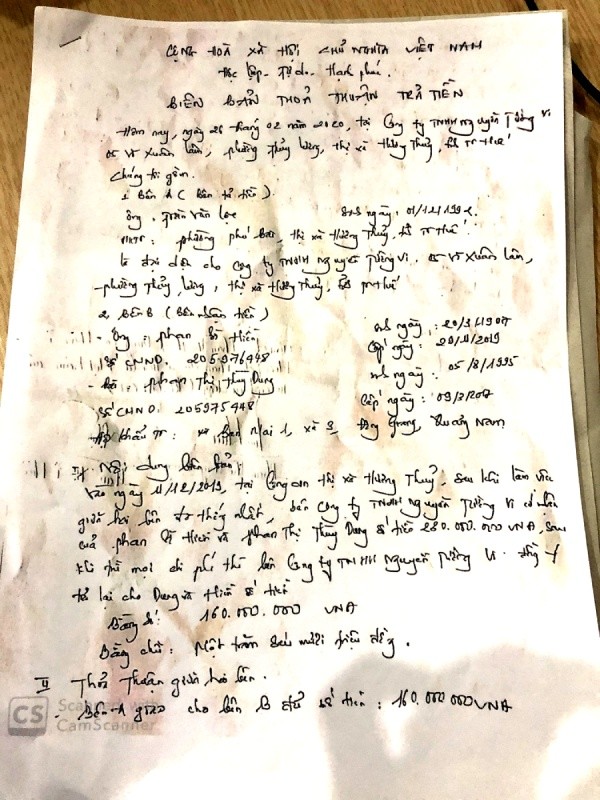 CỘNG HOÀ XÃ HỘI CHỦ NGHĨA VIỆT NAM
Độc lập - Tự do - Hạnh phúc.
BIÊN BẢN THOẢ THUẬN TRẢ TIỀN
Hôm nay, ngày 26 tháng 02 năm 2020, tại Công ty TNHH Nguyễn Tường Vi
05 Võ Xuân Lâm, phường Thủy Lương, thị xã Hương Thuỷ, tỉnh TT Huế
Chúng tôi gồm.
1. Bên A (bên trả tiền).
Ông: Trần Văn Lộc sinh ngày: 01/12/1992.
phường Phú Bài, thị xã Hương Thuỷ, tỉnh TT Huế.
là đại diện cho Công ty TNHH Nguyễn Tường Vi. 05 Võ Xuân Lâm,
phường Thủy Lương, thị xã Hương Thuỷ, tỉnh TT Huế
2. Bên B (bên nhận tiền)
- Ông: Phan Sĩ Hiền sinh ngày: 20/3/1987
Số CMND: 205976448 cấp ngày: 20/11/2019
- Bà: Phan Thị Thuỳ Dung sinh ngày: 05/8/1995
Số CMND: 205975448 cấp ngày: 09/2/2017
Hộ khẩu TT: xã 3, Đông Giang, Quảng Nam
I, Nội dung biên bản:
Vào ngày 11/12/2019, tại Công an thị xã Hương Thuỷ. Sau khi làm việc
giữa hai bên đã thống nhất, bên Công ty TNHH Nguyễn Tường Vi có nhận
của Phan Sĩ Hiền và Phan Thị Thuỳ Dung số tiền 280.000.000 VNĐ, sau
khi trừ mọi chi phí thì bên Công ty TNHH Nguyễn Tường Vi đồng ý
trả lại cho Dung và Hiền số tiền
Bằng số: 160.000.000 VNĐ
Bằng chữ: Một trăm sáu mươi triệu đồng.
II Thoả thuận giữa hai bên.
- Bên A giao cho bên B đủ số tiền: 160.000.000 VNĐ
CS Scanned with
CamScanner